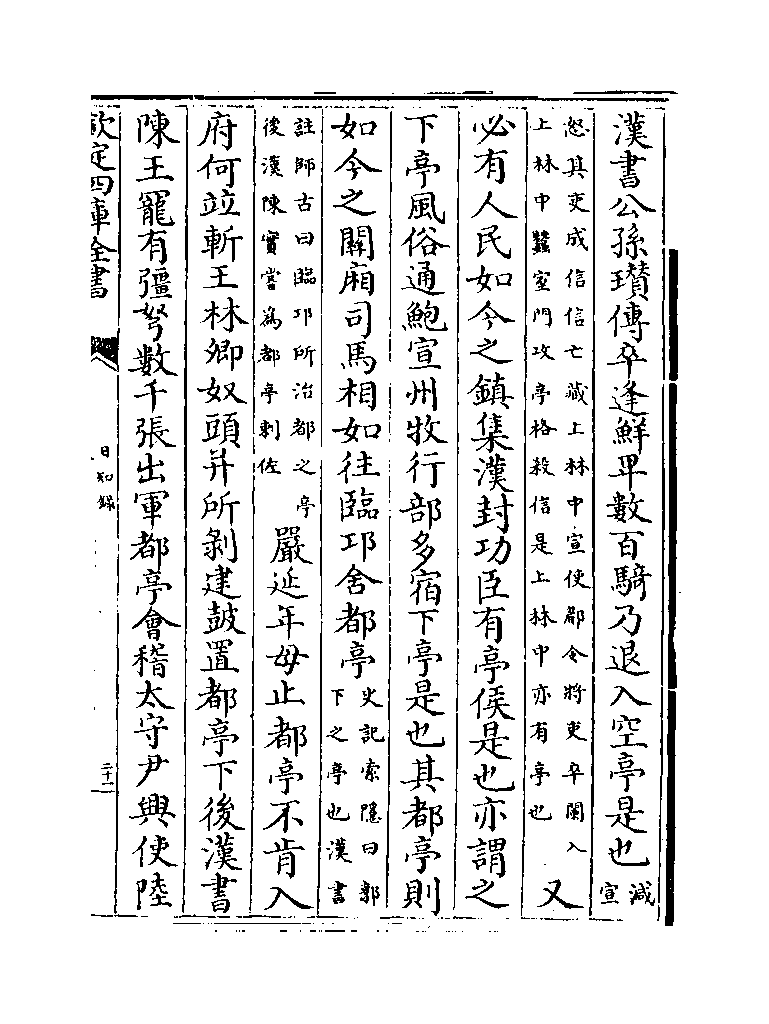 漢書公孫瓉傳卒逢鮮卑數百騎乃退入空亭是也减宣
怒其吏成信信亡藏上林中宣使郿令將吏卒闌入上林中蠶室門攻亭格殺信是上林中亦有亭也又
必有人民如今之鎮集漢封功臣有亭侯是也亦謂之
下亭風俗通鮑宣州牧行部多宿下亭是也其都亭則
如今之關廂司馬相如往臨邛舍都亭史記索隱曰郭下之亭也漢書
註師古曰臨邛所治都之亭後漢陳寔嘗爲都亭刺佐嚴延年母止都亭不肯入
府何竝斬王林卿奴頭并所剝建鼓置都亭下後漢書
陳王寵有彊弩數千張出軍都亭會稽太守尹興使陸
欽定四庫全書
日知錄
二十一